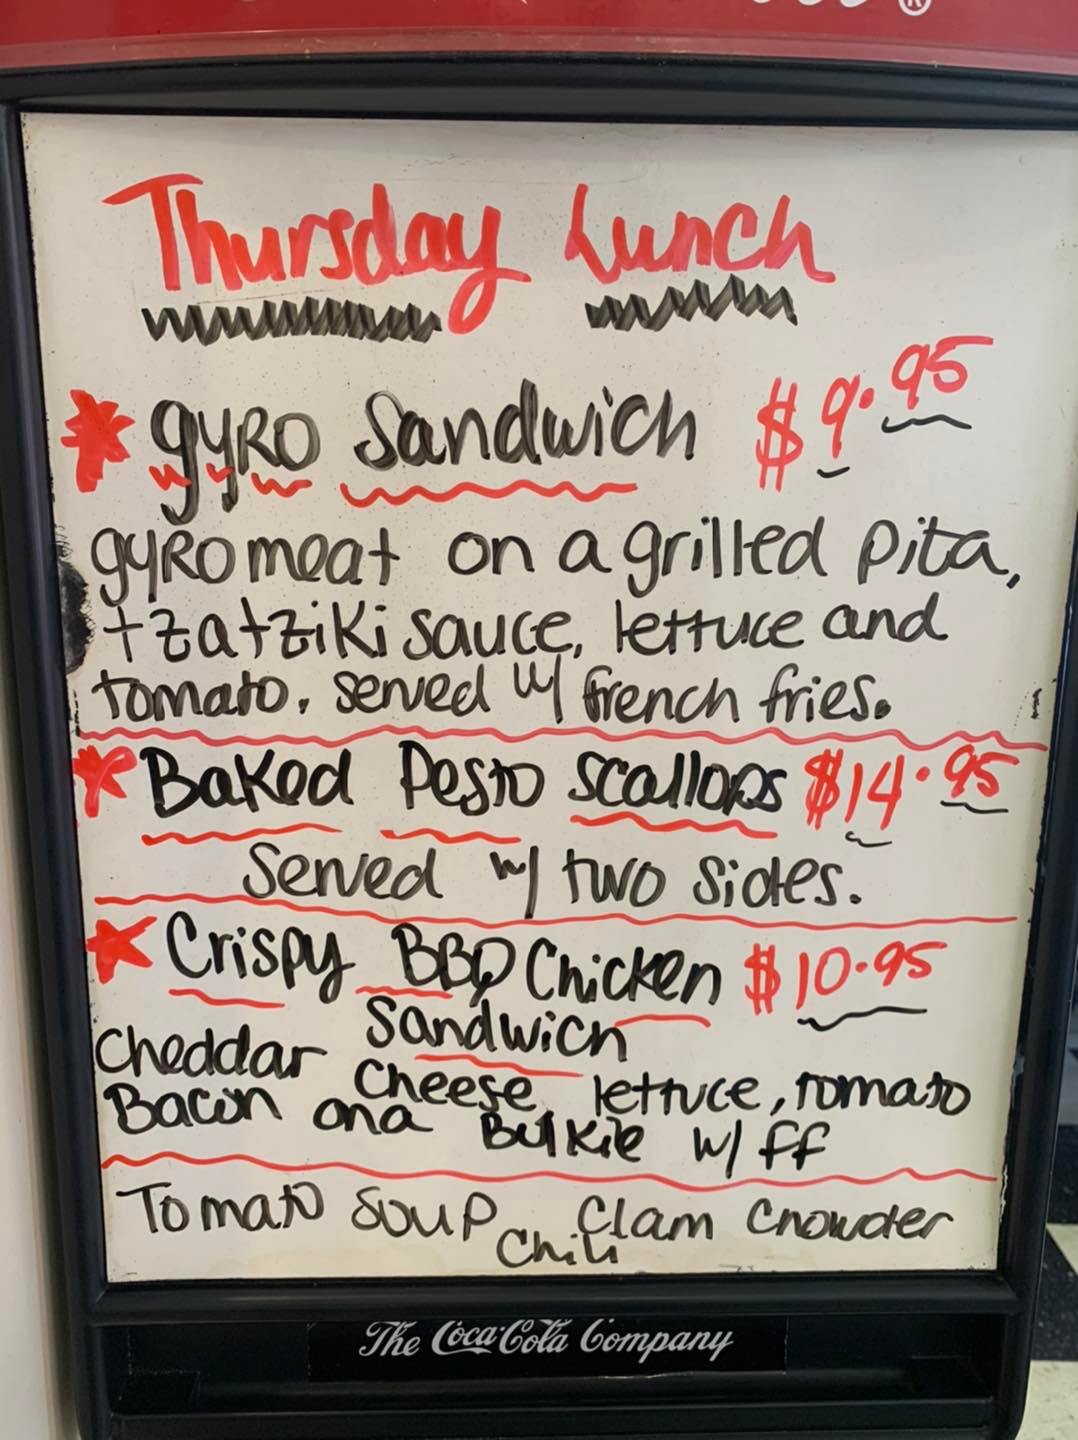 ®
Thursday Lunch
* gyRO Sandwich $9.95
gyRO meat on a grilled pita,
tzatziki sauce, lettuce and
tomato. served w/ french fries.
* Baked Pesto scallops $14.95
Served w/ two sides.
* Crispy BBQ Chicken $10.95
Sandwich
Cheddar Cheese, lettuce, tomato
Bacon on a Bulkie w/ ff
Tomato Soup Clam Chowder
Chili
The Coca-Cola Company